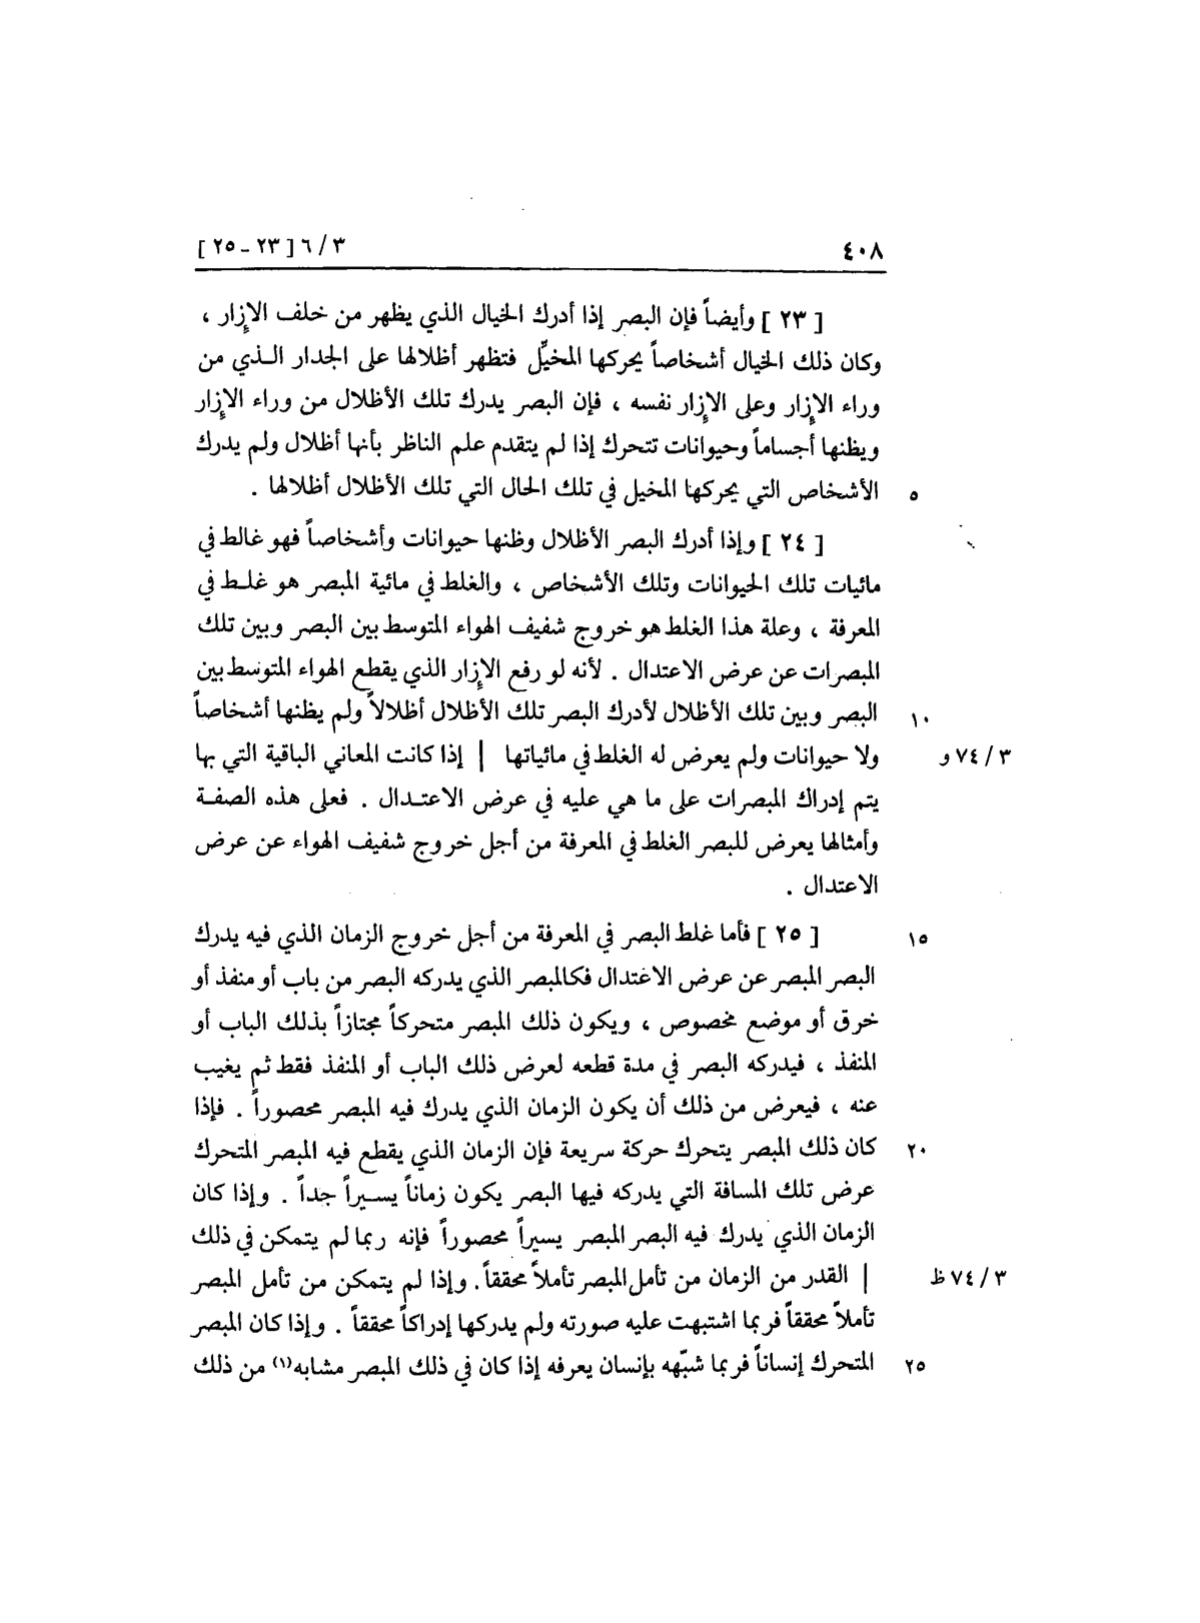 ٤٠٨ ٦/٣ [ ٢٣ - ٢٥ ]
[ ٢٣ ] وأيضاً فإن البصر إذا أدرك الخيال الذي يظهر من خلف الإزار ،
وكان ذلك الخيال أشخاصاً يحركها المخيِّل فتظهر أظلالها على الجدار الذي من
وراء الإزار وعلى الإزار نفسه ، فإن البصر يدرك تلك الأظلال من وراء الإزار
ويظنها أجساماً وحيوانات تتحرك إذا لم يتقدم علم الناظر بأنها أظلال ولم يدرك
٥ الأشخاص التي يحركها المخيل في تلك الحال التي تلك الأظلال أظلالها .
[ ٢٤ ] وإذا أدرك البصر الأظلال وظنها حيوانات وأشخاصاً فهو غالط في
مائيات تلك الحيوانات وتلك الأشخاص ، والغلط في مائية المبصر هو غلط في
المعرفة ، وعلة هذا الغلط هو خروج شفيف الهواء المتوسط بين البصر وبين تلك
المبصرات عن عرض الاعتدال . لأنه لو رفع الإزار الذي يقطع الهواء المتوسط بين
١٠ البصر وبين تلك الأظلال لأدرك البصر تلك الأظلال أظلالاً ولم يظنها أشخاصاً
٧٤/٣ و ولا حيوانات ولم يعرض له الغلط في مائياتها | إذا كانت المعاني الباقية التي بها
يتم إدراك المبصرات على ما هي عليه في عرض الاعتدال . فعلى هذه الصفة
وأمثالها يعرض للبصر الغلط في المعرفة من أجل خروج شفيف الهواء عن عرض
الاعتدال .
١٥ [ ٢٥ ] فأما غلط البصر في المعرفة من أجل خروج الزمان الذي فيه يدرك
البصر المبصر عن عرض الاعتدال فكالمبصر الذي يدركه البصر من باب أو منفذ أو
خرق أو موضع مخصوص ، ويكون ذلك المبصر متحركاً مجتازاً بذلك الباب أو
المنفذ ، فيدركه البصر في مدة قطعه لعرض ذلك الباب أو المنفذ فقط ثم يغيب
عنه ، فيعرض من ذلك أن يكون الزمان الذي يدرك فيه المبصر محصوراً . فإذا
٢٠ كان ذلك المبصر يتحرك حركة سريعة فإن الزمان الذي يقطع فيه المبصر المتحرك
عرض تلك المسافة التي يدركه فيها البصر يكون زماناً يسيراً جداً . وإذا كان
الزمان الذي يدرك فيه البصر المبصر يسيراً محصوراً فإنه ربما لم يتمكن في ذلك
٧٤/٣ ظ | القدر من الزمان من تأمل المبصر تأملاً محققاً . وإذا لم يتمكن من تأمل المبصر
تأملاً محققاً فربما اشتبهت عليه صورته ولم يدركها إدراكاً محققاً . وإذا كان المبصر
٢٥ المتحرك إنساناً فربما شبّهه بإنسان يعرفه إذا كان في ذلك المبصر مشابه(١) من ذلك